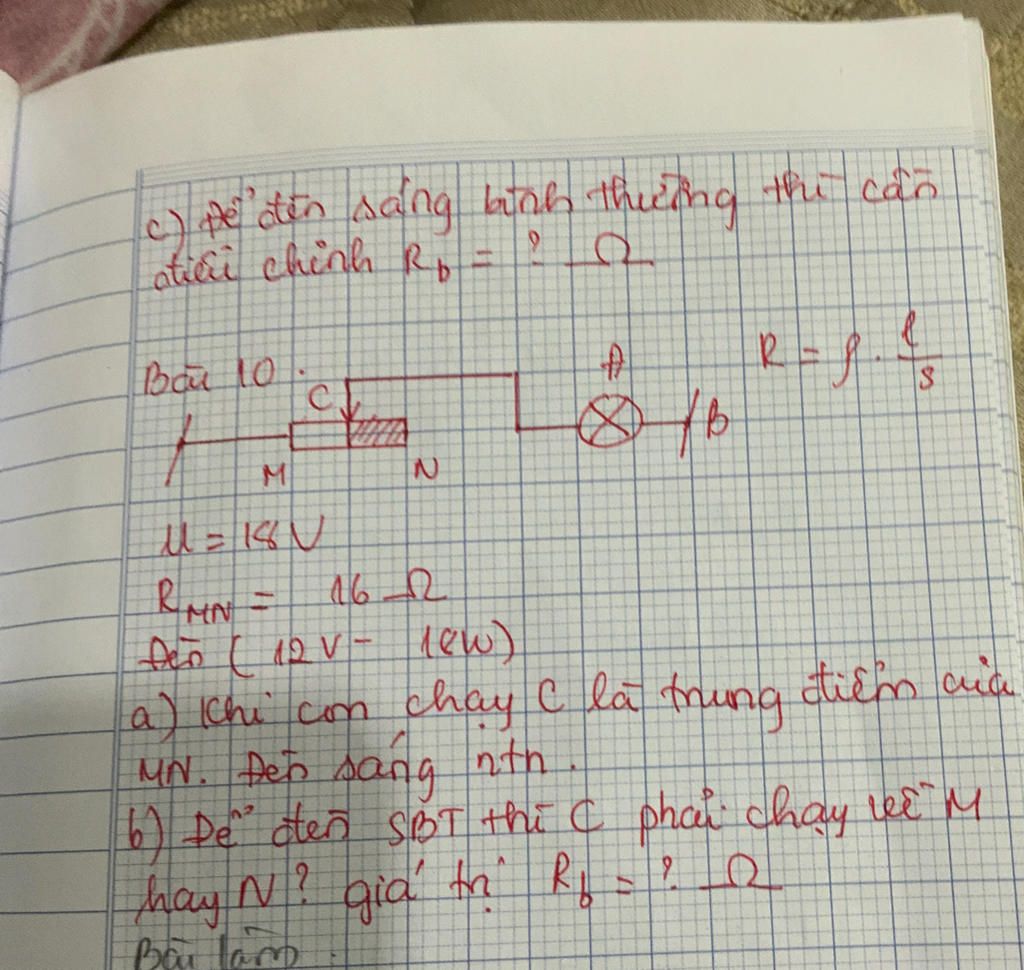 c) Để đèn sáng bình thường thì cần
điều chỉnh R_b = ? Ω
Bài 10.
R = ρ . l/s
C
Đ
M
N
B
U = 18V
R_MN = 16 Ω
Đèn ( 12V -
a) Khi con chạy C là trung điểm của
MN. Đèn sáng ntn.
b) Để đèn SBT thì C phải chạy về M
hay N? giá trị R_b = ? Ω
Bài làm.